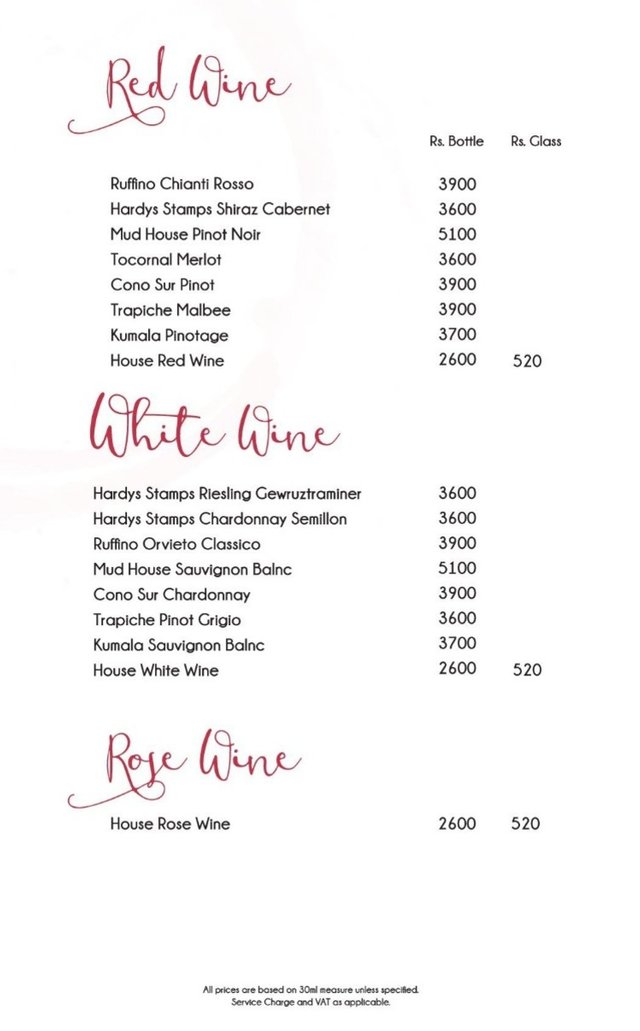 Red Wine
Rs. Bottle Rs. Glass
Ruffino Chianti Rosso 3900
Hardys Stamps Shiraz Cabernet 3600
Mud House Pinot Noir 5100
Tocornal Merlot 3600
Cono Sur Pinot 3900
Trapiche Malbee 3900
Kumala Pinotage 3700
House Red Wine 2600 520
White Wine
Hardys Stamps Riesling Gewruztraminer 3600
Hardys Stamps Chardonnay Semillon 3600
Ruffino Orvieto Classico 3900
Mud House Sauvignon Balnc 5100
Cono Sur Chardonnay 3900
Trapiche Pinot Grigio 3600
Kumala Sauvignon Balnc 3700
House White Wine 2600 520
Rose Wine
House Rose Wine 2600 520
All prices are based on 30ml measure unless specified.
Service Charge and VAT as applicable.